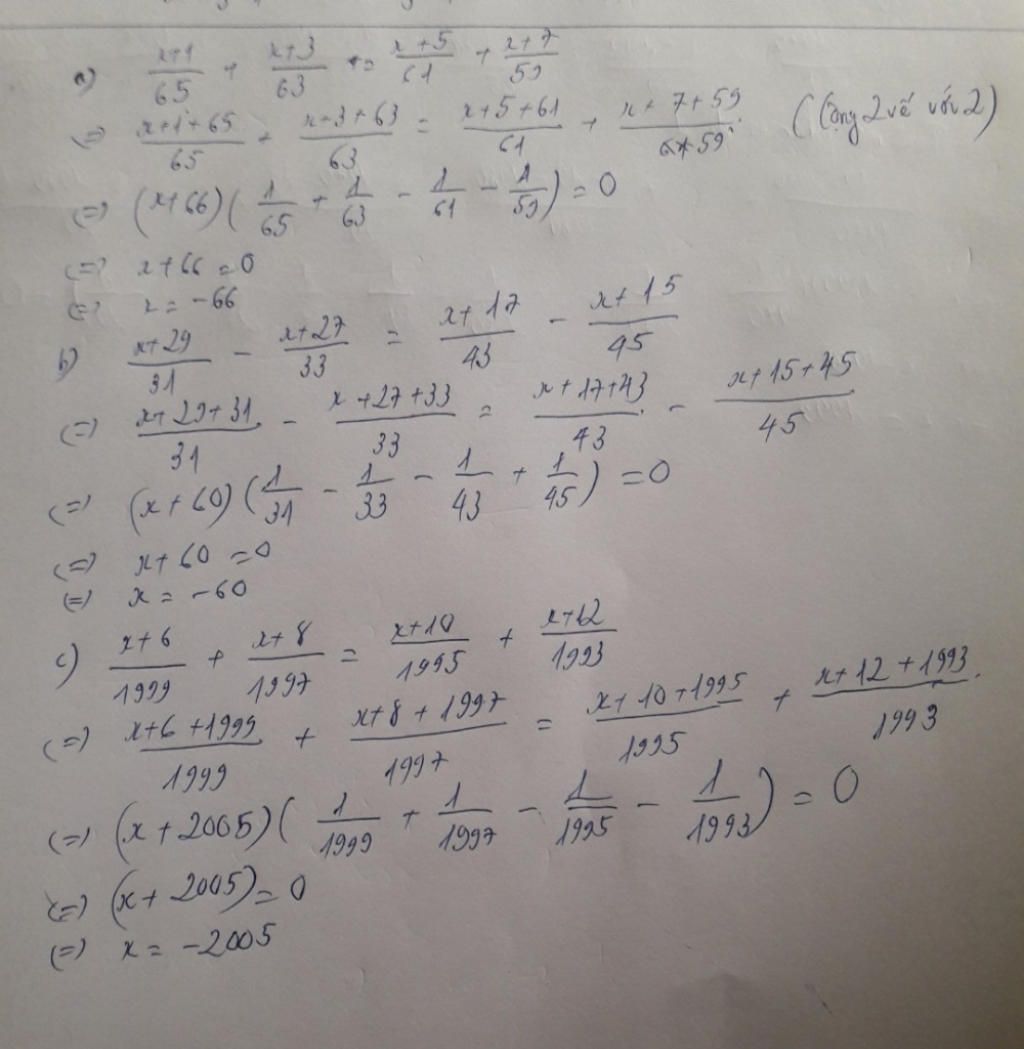 a) (x+1)/65 + (x+3)/63 = (x+5)/61 + (x+7)/59
<=> (x+1+65)/65 + (x+3+63)/63 = (x+5+61)/61 + (x+7+59)/59 (Cộng 2 vế với 2)
<=> (x+66)(1/65 + 1/63 - 1/61 - 1/59) = 0
<=> x+66 = 0
<=> x = -66
b) (x+29)/31 - (x+27)/33 = (x+17)/43 - (x+15)/45
<=> (x+29+31)/31 - (x+27+33)/33 = (x+17+43)/43 - (x+15+45)/45
<=> (x+60)(1/31 - 1/33 - 1/43 + 1/45) = 0
<=> x+60 = 0
<=> x = -60
c) (x+6)/1999 + (x+8)/1997 = (x+10)/1995 + (x+12)/1993
<=> (x+6+1999)/1999 + (x+8+1997)/1997 = (x+10+1995)/1995 + (x+12+1993)/1993
<=> (x+2005)(1/1999 + 1/1997 - 1/1995 - 1/1993) = 0
<=> (x+2005) = 0
<=> x = -2005